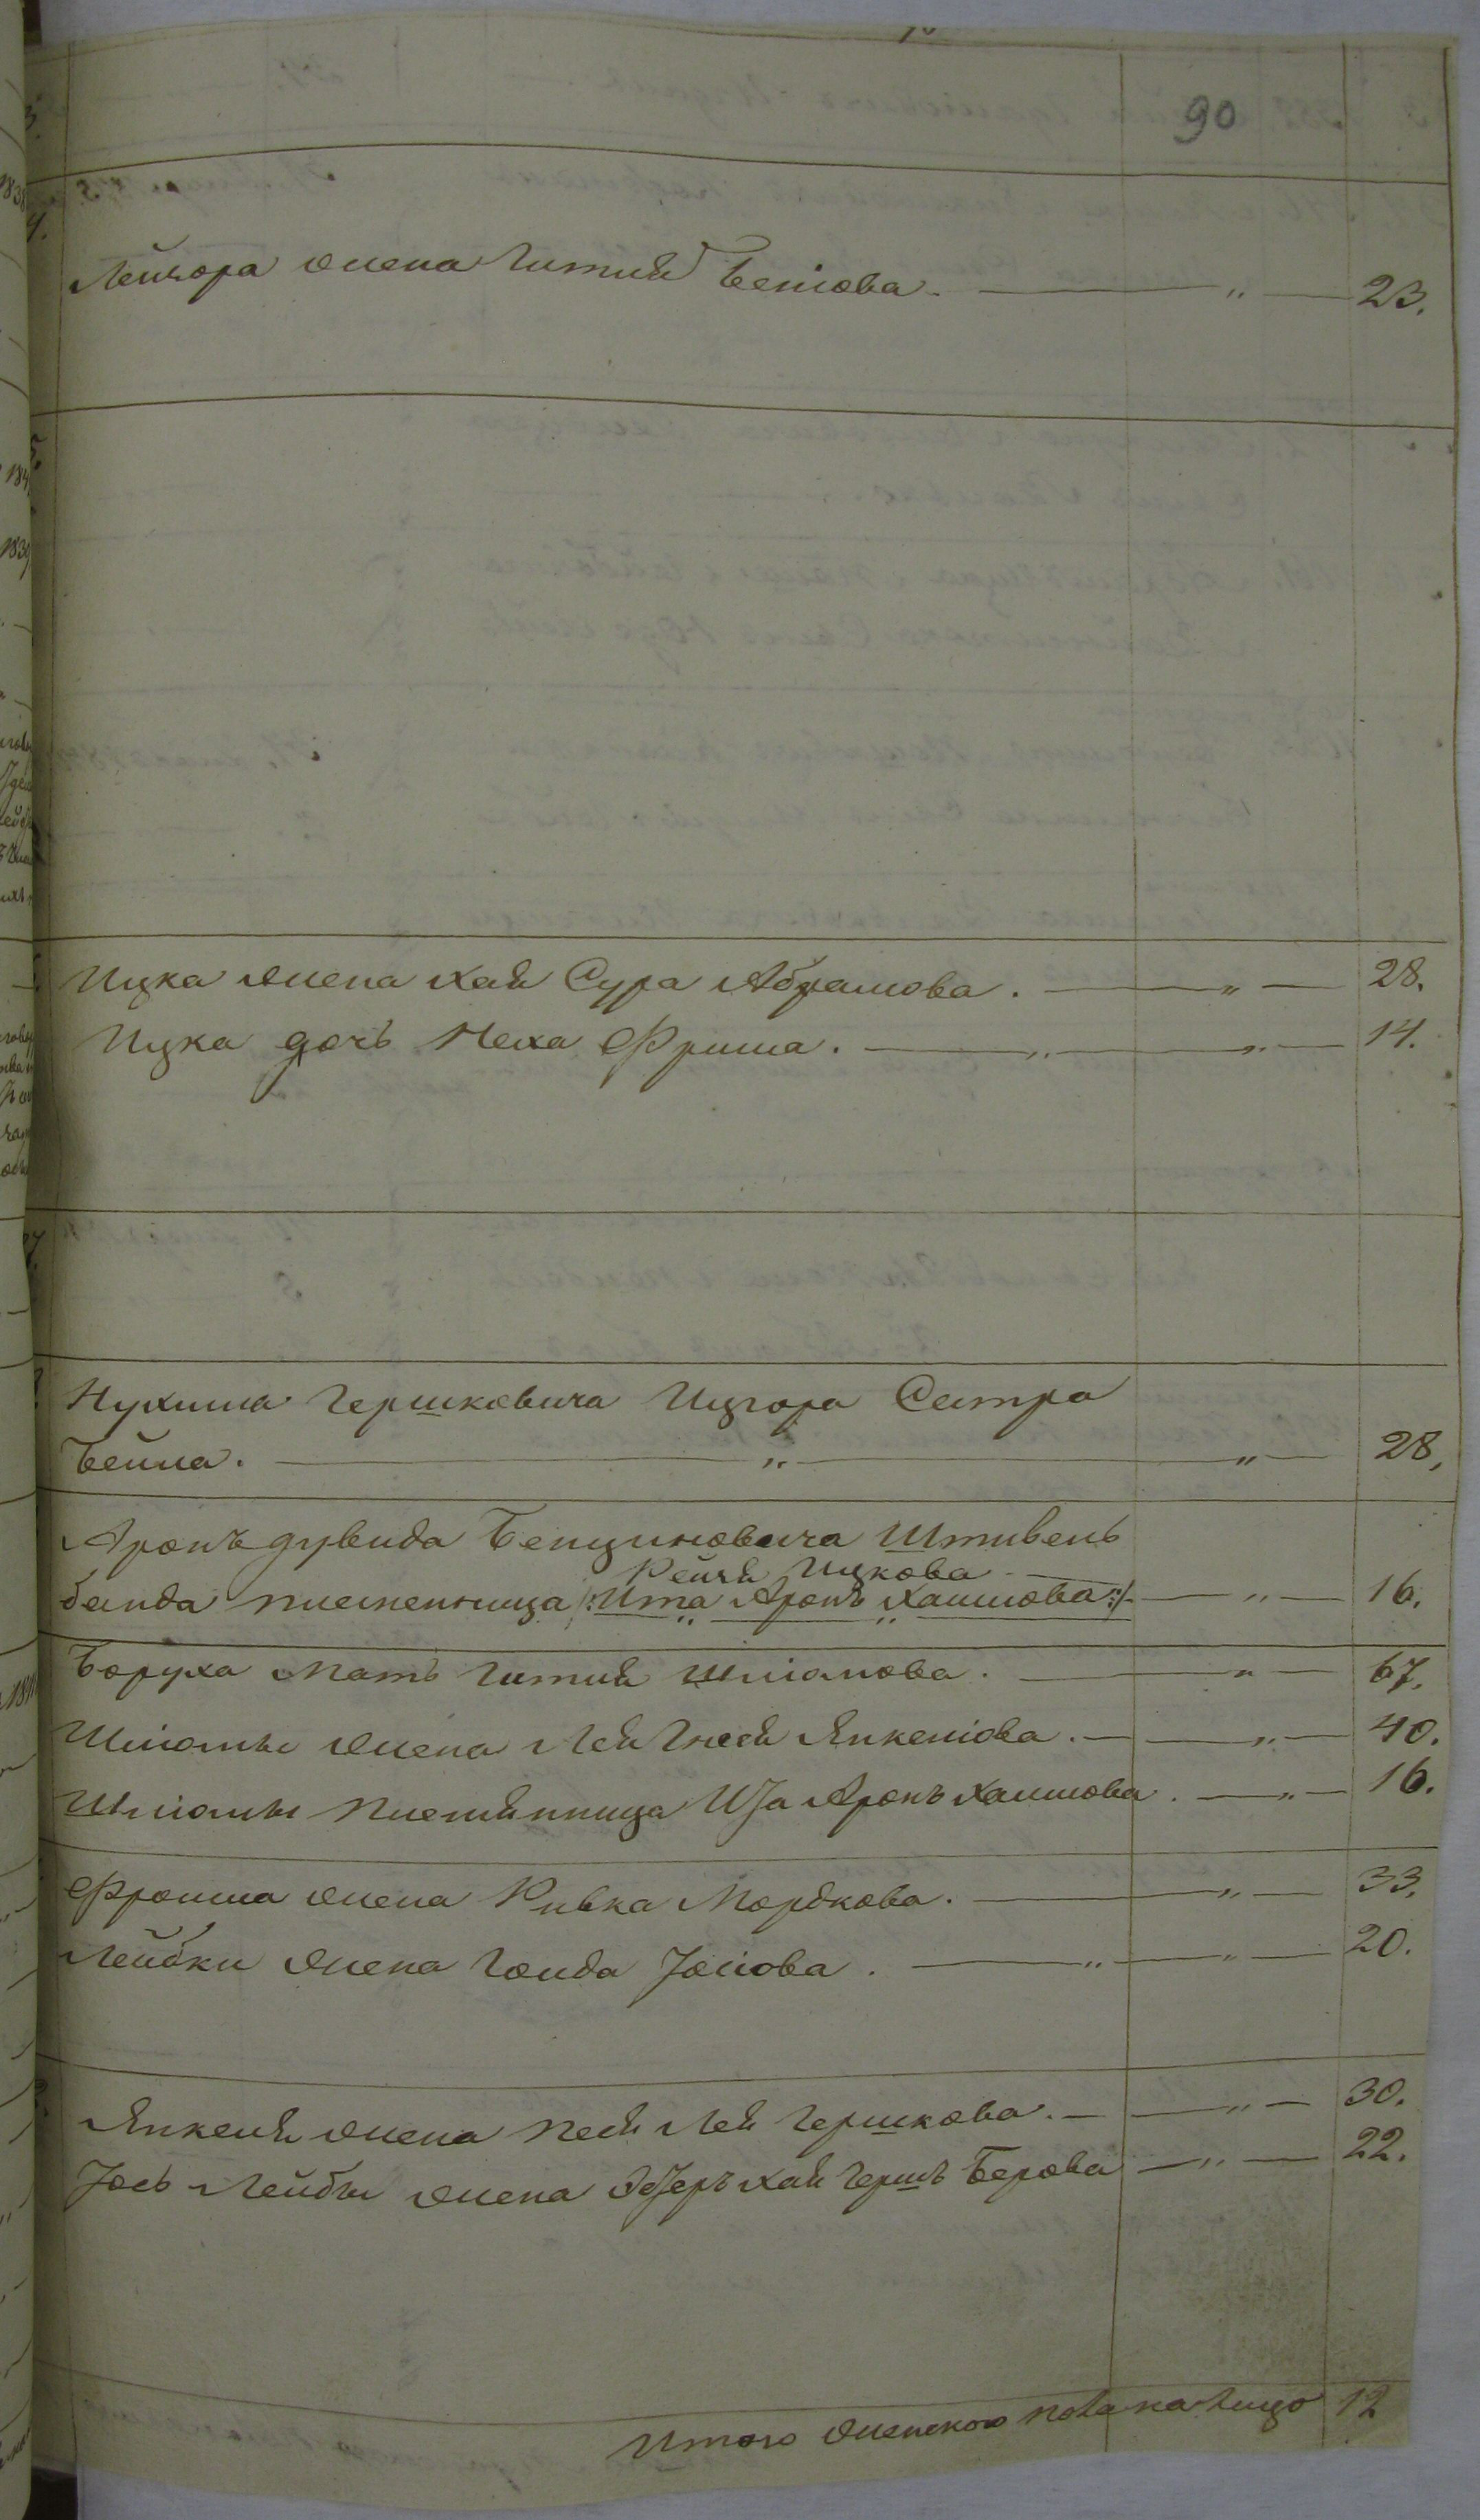 90
Лейзора жена Гитля Беніова. — " — 23.
Ицка жена Хая Сура Абрамова. — " — 28.
Ицка дочь Неха Фрима. — " — " — 14.
Нухима Гершковича Ицгора Сестра
Бейла. — " — " — 28.
Аронъ Дувида Бенциновича Штивель
Рейзя Ицкова
банда племенница /: Ита Аронъ Хаимова :/ — " — 16.
Боруха мать Гитля Шліомова. — " — 67.
Шліомы жена Лея Гнеся Янкеліова. — " — 40.
Шліомы племянница Ита Аронъ Хаимова. — " — 16.
Фроима жена Ривка Мордкова. — " — 33.
Лейбки жена Голда Іосіова. — " — " — 20.
Янкеля жена Песя Лея Гершкова. — " — 30.
Іось Лейбы жена Эстеръ Хая Гершъ Берова — " — 22.
Итого женского пола на лицо 12